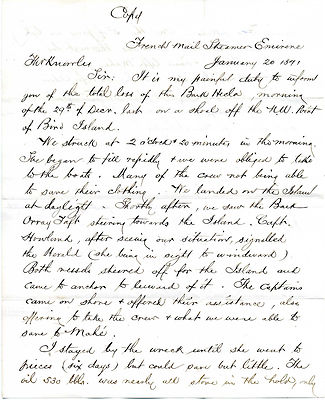 Copy
French Mail Steamer Emirne
January 20 1871
Th: Knowles
Sir: It is my painful duty to inform
you of the total loss of the Bark Hecla, morning
of the 29th of Decr. last on a shoal off the N.W. Point
of Bird Island.
We struck at 2 o'clock & 20 minutes in the morning.
She began to fill rapidly & we were obliged to take
to the boats. Many of the crew not being able
to save their clothing. We landed on the Island
at daylight. Shortly after, we saw the Bark
Orray Taft steering towards the Island. Capt.
Howland, after seeing our situation, signalled
the Herald (she being in sight to windward)
Both vessels steered off for the Island and
came to anchor to leeward of it. The Captains
came on shore & offered their assistance, also
offering to take the crew & what we were able to
save to Mahé
I stayed by the wreck until she went to
pieces (six days) but could save but little. The
oil 530 bbls. was nearly all stove in the hold, only